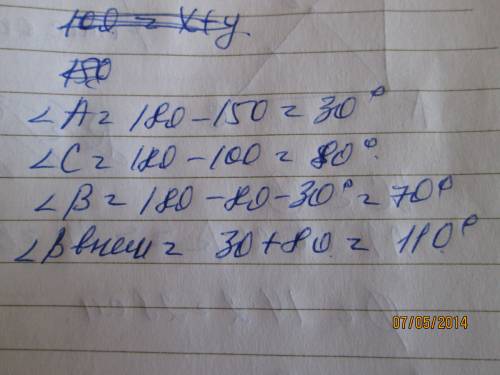 100 = x+y.
150
∠A = 180 - 150 = 30°
∠C = 180 - 100 = 80°.
∠B = 180 - 80 - 30° = 70°
∠B внеш = 30 + 80 = 110°
07/05/2014